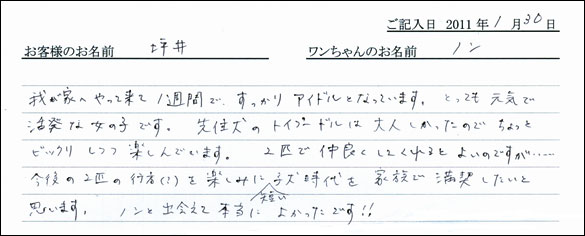 ご記入日 2011年1月30日
お客様のお名前 坪井 ワンちゃんのお名前 ノン
我が家へやって来て1週間で、すっかりアイドルとなっています。とっても元気で
活発な女の子です。先住犬のトイプードルは大人しかったのでちょっと
ビックリしつつ楽しんでいます。2匹で仲良くしてくれるとよいのですが……
今後の2匹の行方(?)を楽しみに短い子犬時代を家族で満喫したいと
思います。ノンと出会えて本当によかったです!!